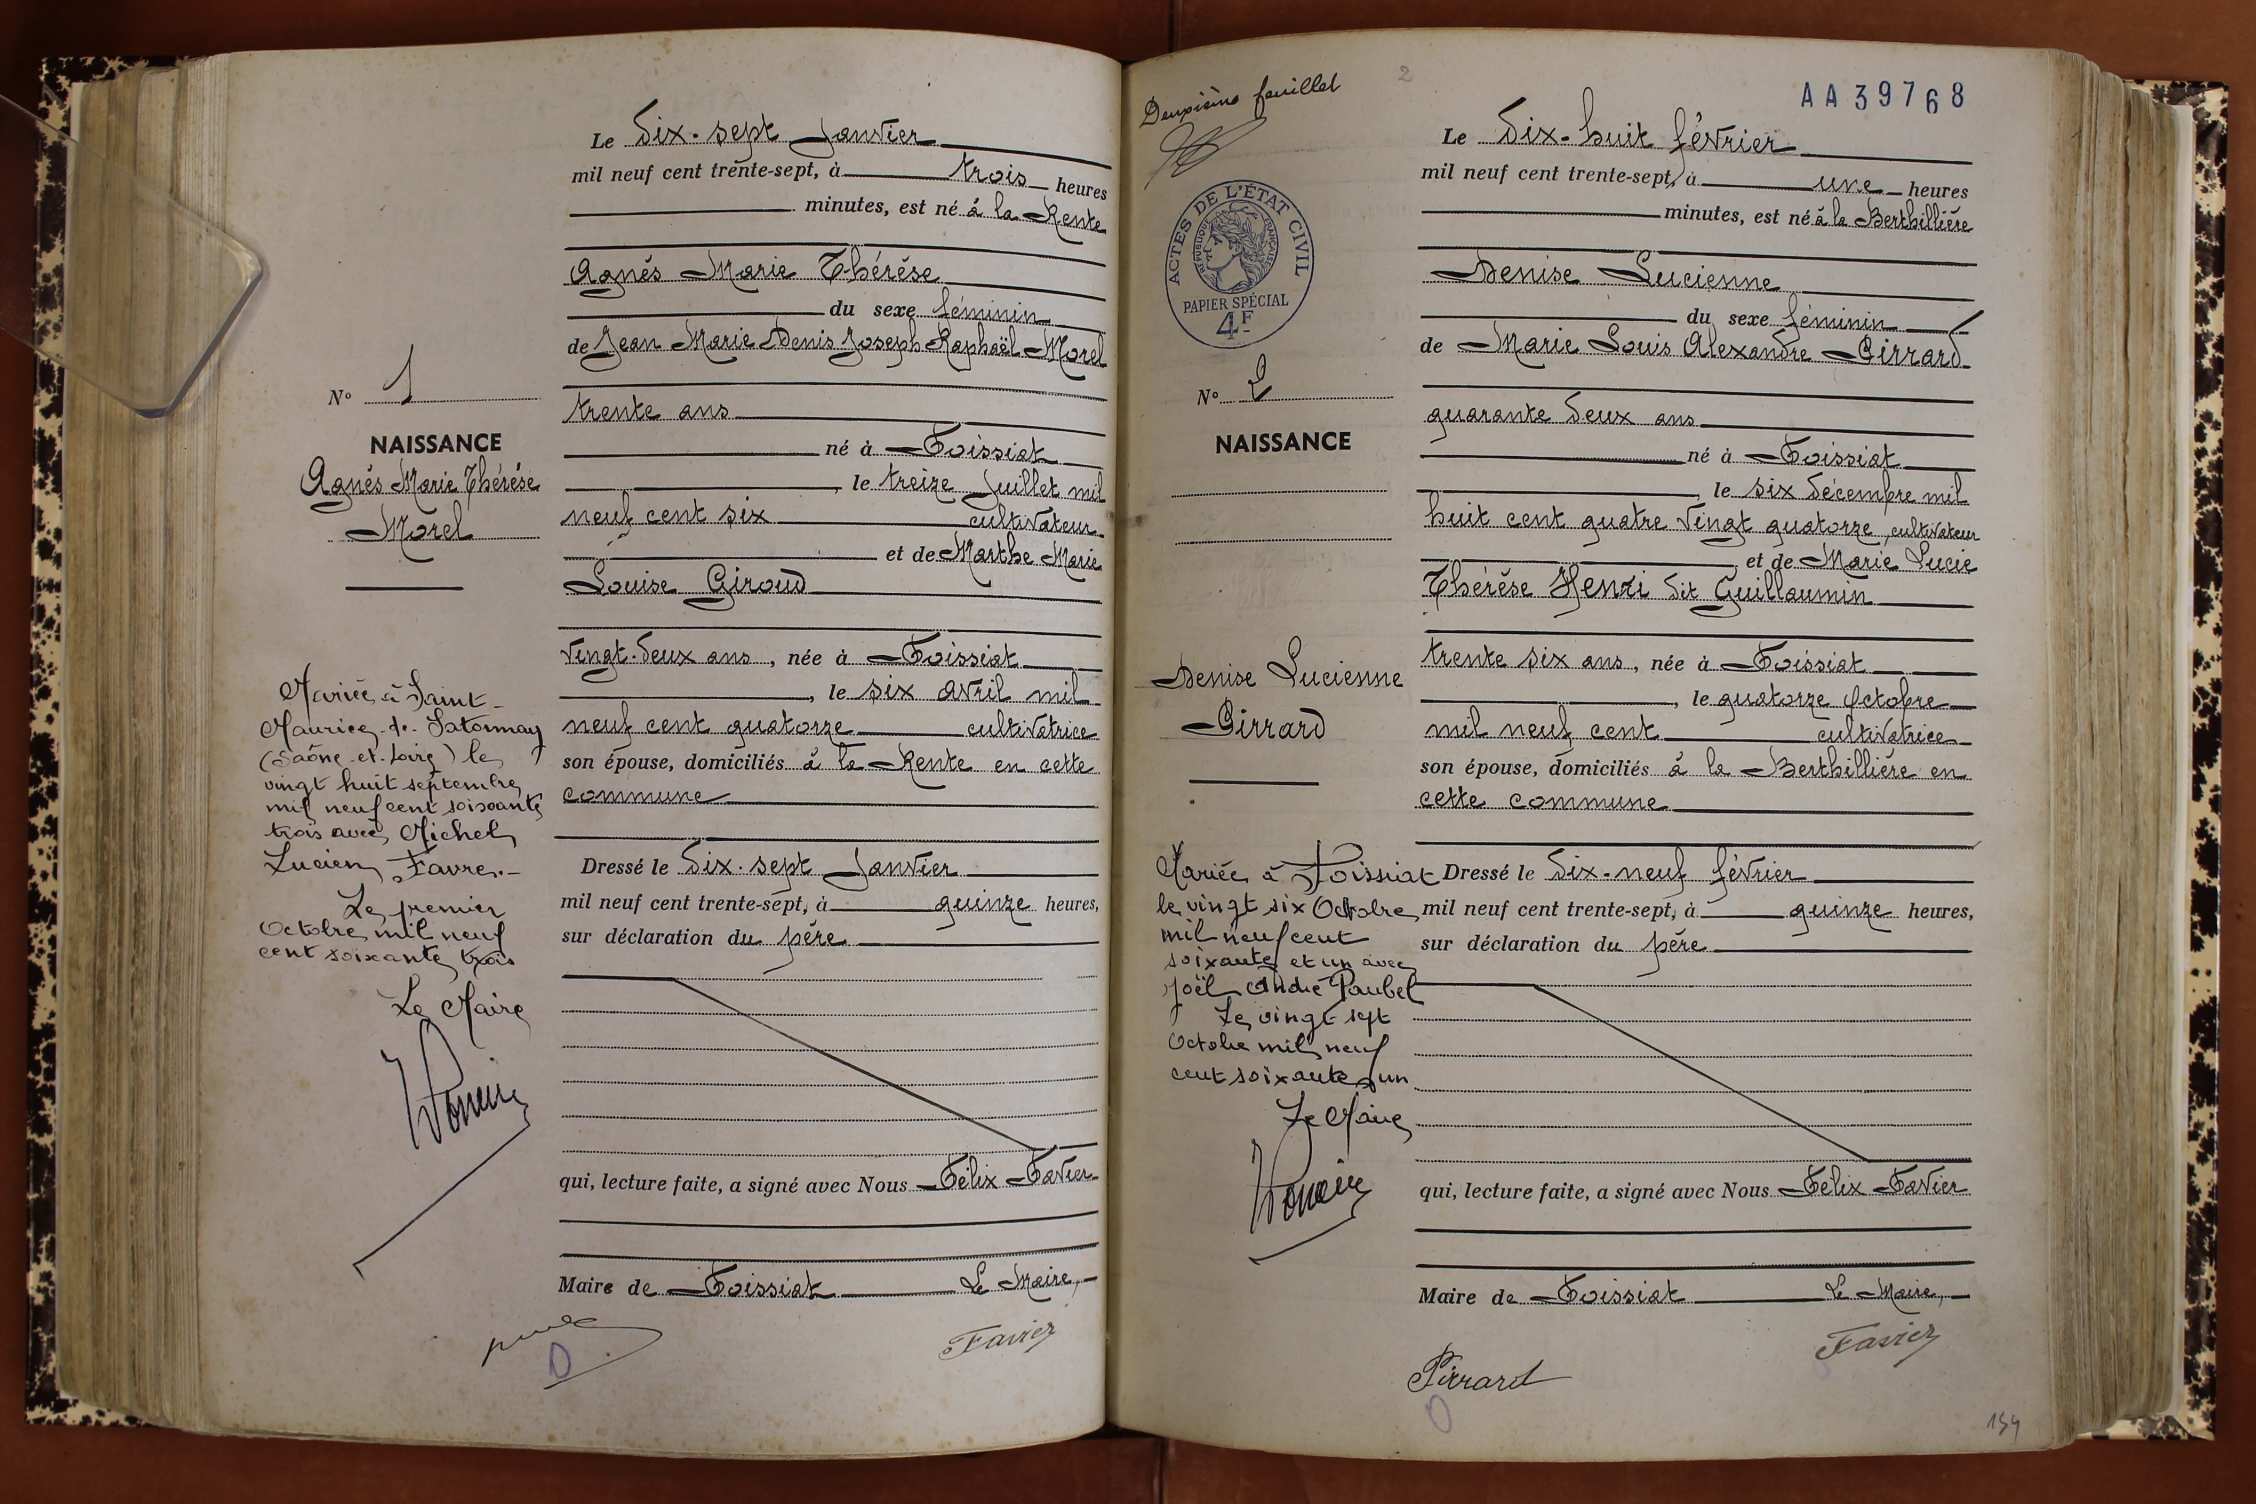 Le dix-sept Janvier
mil neuf cent trente-sept, à trois heures
minutes, est né à la Rente
Agnès Marie Thérèse
du sexe féminin
de Jean Marie Denis Joseph Raphaël Morel
trente ans
né à Foissiat
, le treize Juillet mil
neuf cent six cultivateur
et de Marthe Marie
Louise Giroud
vingt-deux ans, née à Foissiat
, le six avril mil
neuf cent quatorze cultivatrice
son épouse, domiciliés à la Rente en cette
commune
Dressé le dix-sept Janvier
mil neuf cent trente-sept, à quinze heures,
sur déclaration du père
qui, lecture faite, a signé avec Nous Félix Favier
Maire de Foissiat Le Maire,
Favier
N° 1
NAISSANCE
Agnès Marie Thérèse
Morel
Mariée à Saint-
Maurice-de-Satonnay
(Saône-et-Loire) le
vingt huit septembre
mil neuf cent soixante
trois avec Michel
Lucien Favre.-
Le premier
Octobre mil neuf
cent soixante trois
Le Maire
Deuxième feuillet
2
AA39768
ACTES DE L'ÉTAT CIVIL
RÉPUBLIQUE FRANÇAISE
PAPIER SPÉCIAL
4F
Le dix-huit février
mil neuf cent trente-sept, à une heures
minutes, est né à la Berthillière
Denise Lucienne
du sexe féminin
de Marie Louis Alexandre Pirrard
quarante deux ans
né à Foissiat
, le six décembre mil
huit cent quatre vingt quatorze, cultivateur
et de Marie Lucie
Thérèse Henri dit Guillaumin
trente six ans, née à Foissiat
, le quatorze Octobre
mil neuf cent cultivatrice
son épouse, domiciliés à la Berthillière en
cette commune
Dressé le dix-neuf février
mil neuf cent trente-sept, à quinze heures,
sur déclaration du père
qui, lecture faite, a signé avec Nous Félix Favier
Maire de Foissiat Le Maire,
Favier
Pirrard
N° 2
NAISSANCE
Denise Lucienne
Pirrard
Mariée à Foissiat
le vingt six Octobre
mil neuf cent
soixante et un avec
Joël André Paubel
Le vingt sept
Octobre mil neuf
cent soixante un
Le Maire
154